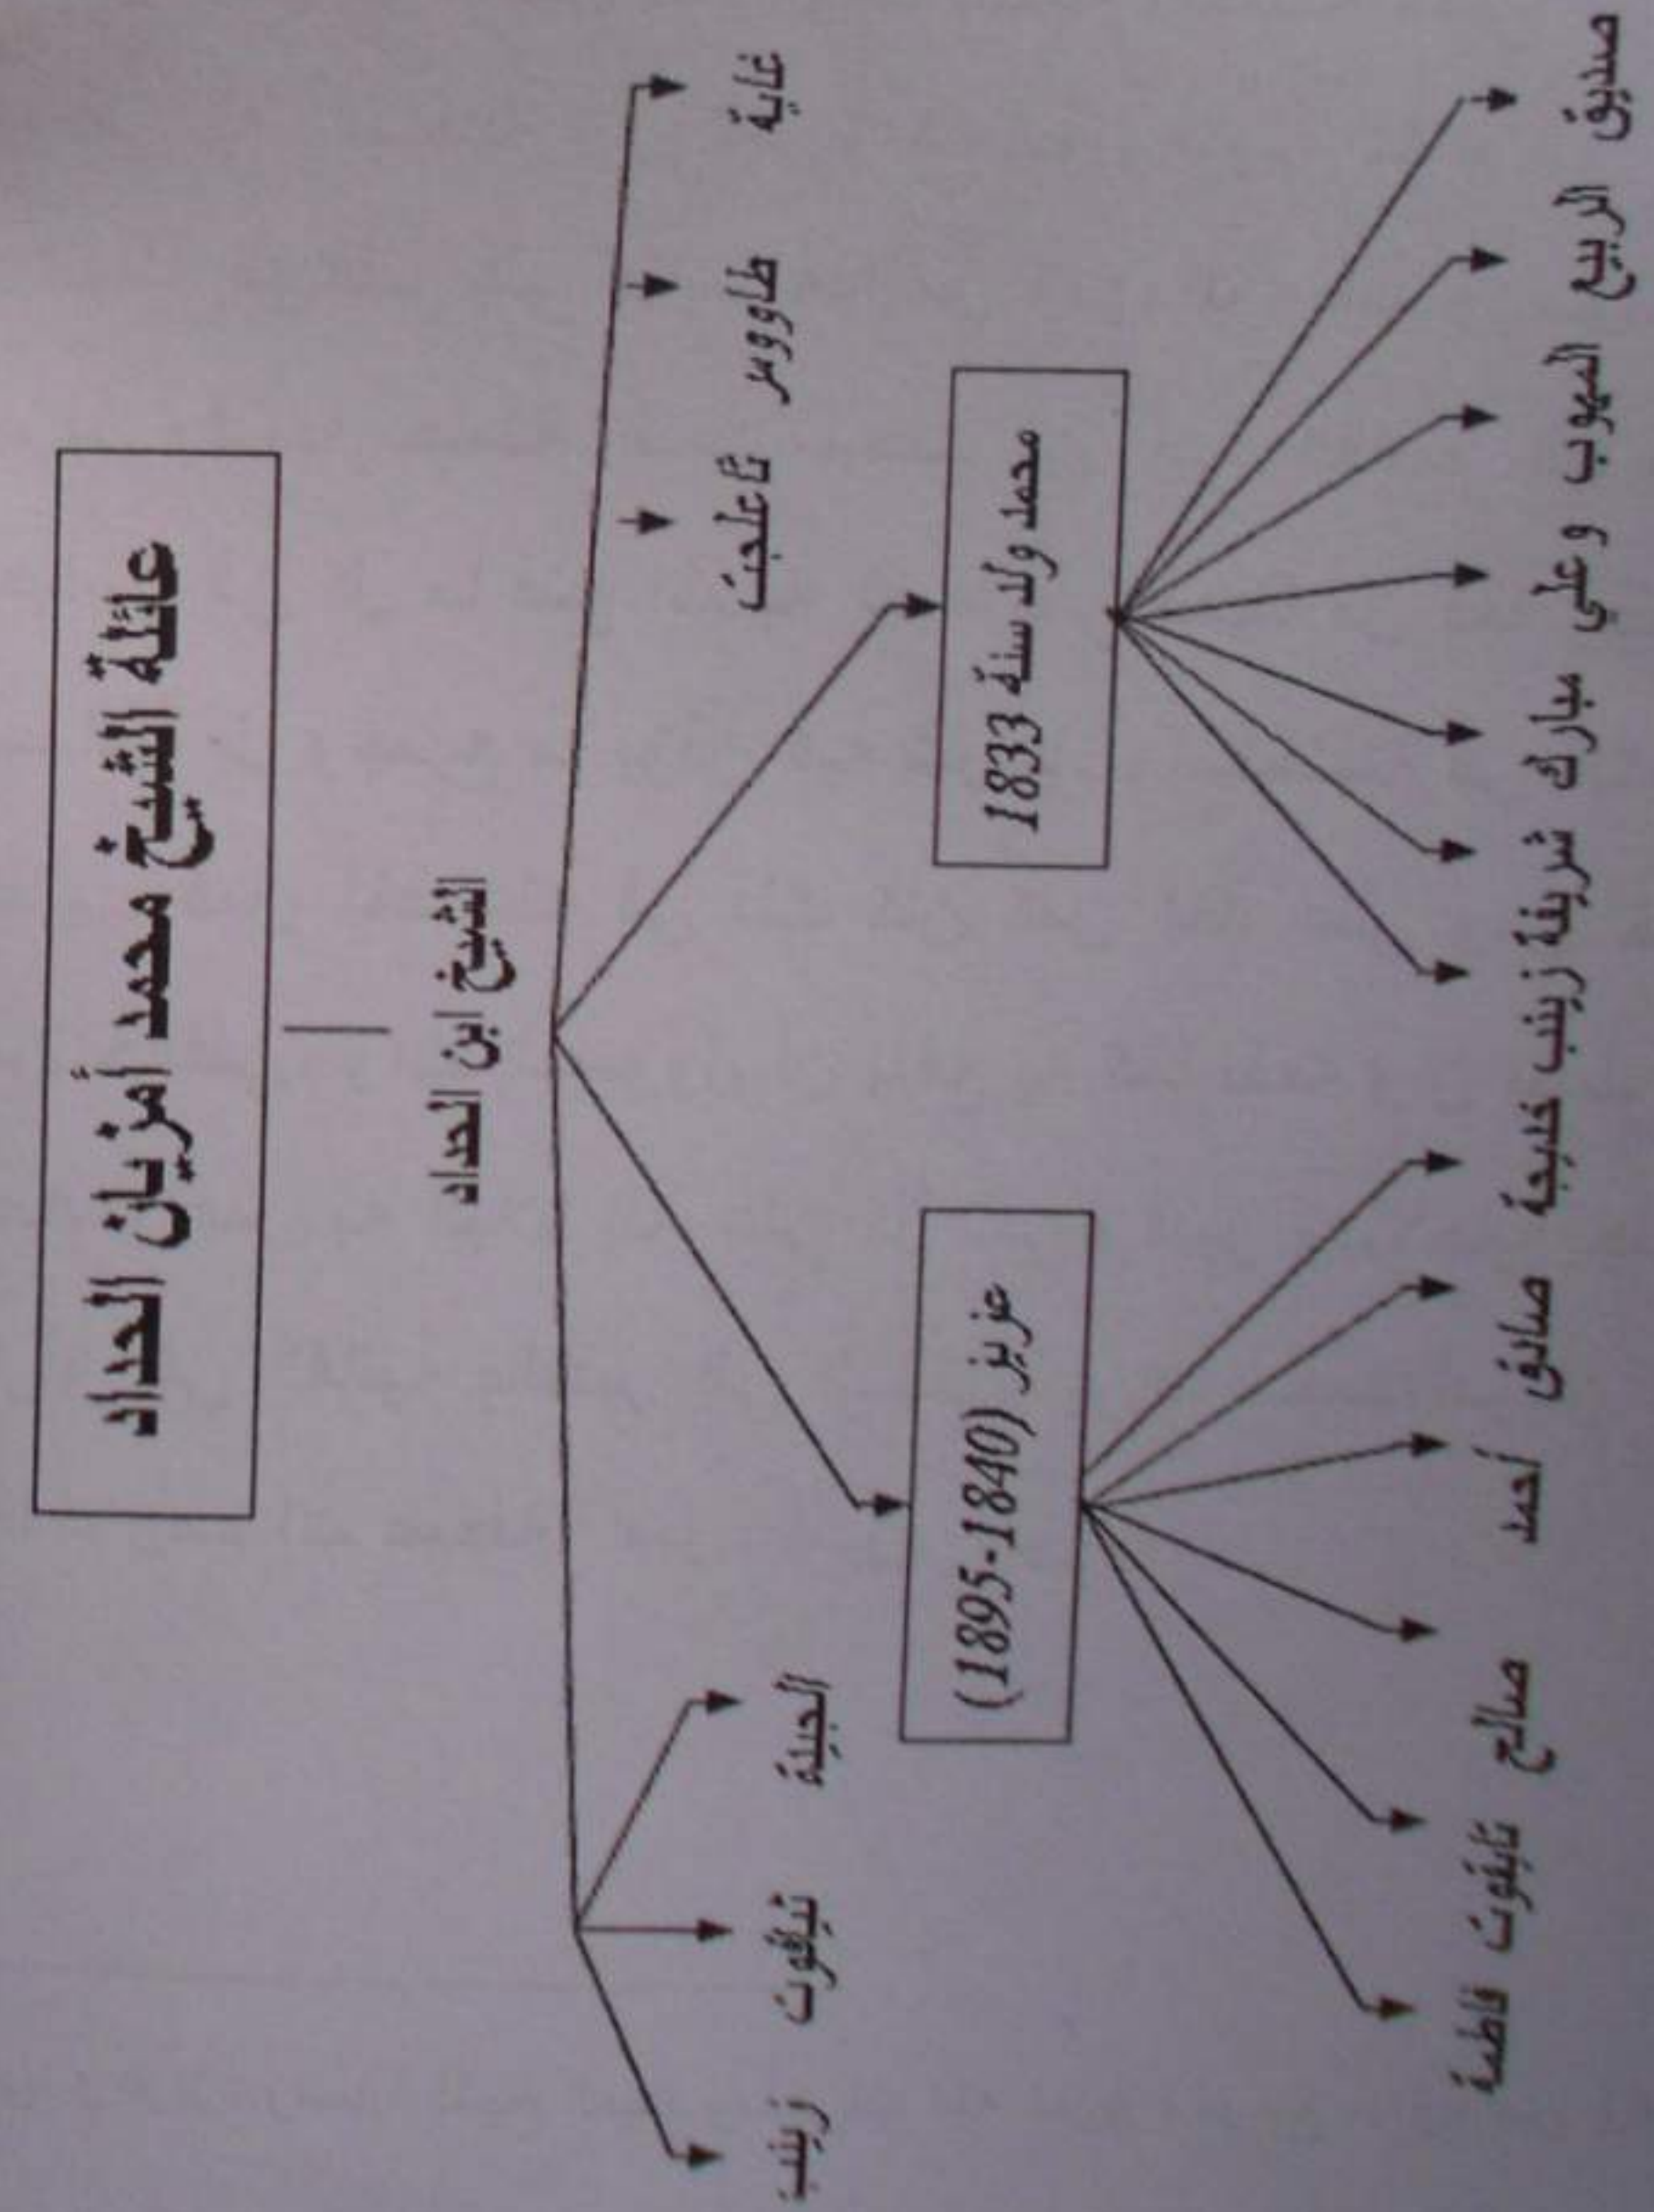 عائلة الشيخ محمد أمزيان الحداد
الشيخ ابن الحداد
غاية طاووس تاعلجت الجيدة تيقوت زينب
محمد ولد سنة 1833
عزيز (1840-1895)
صديق الربيع الميهوب وعلي مبارك شريفة زينب خديجة صادق أحمد صالح تايقوت فاطمة